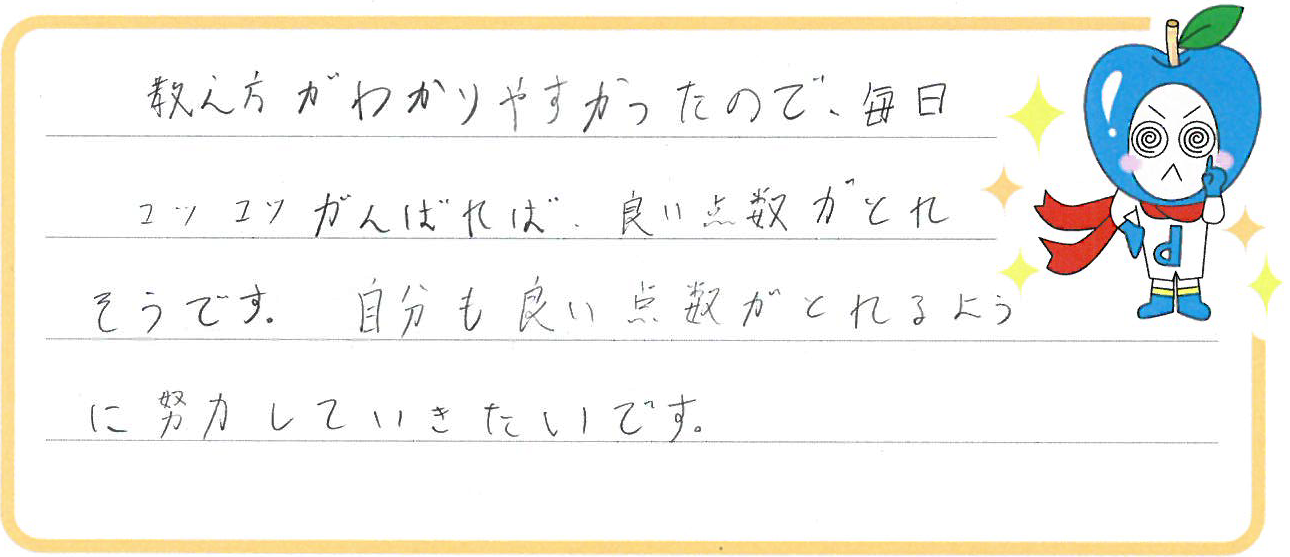 教え方がわかりやすかったので、毎日
コツコツがんばれば、良い点数がとれ
そうです。自分も良い点数がとれるよう
に努力していきたいです。